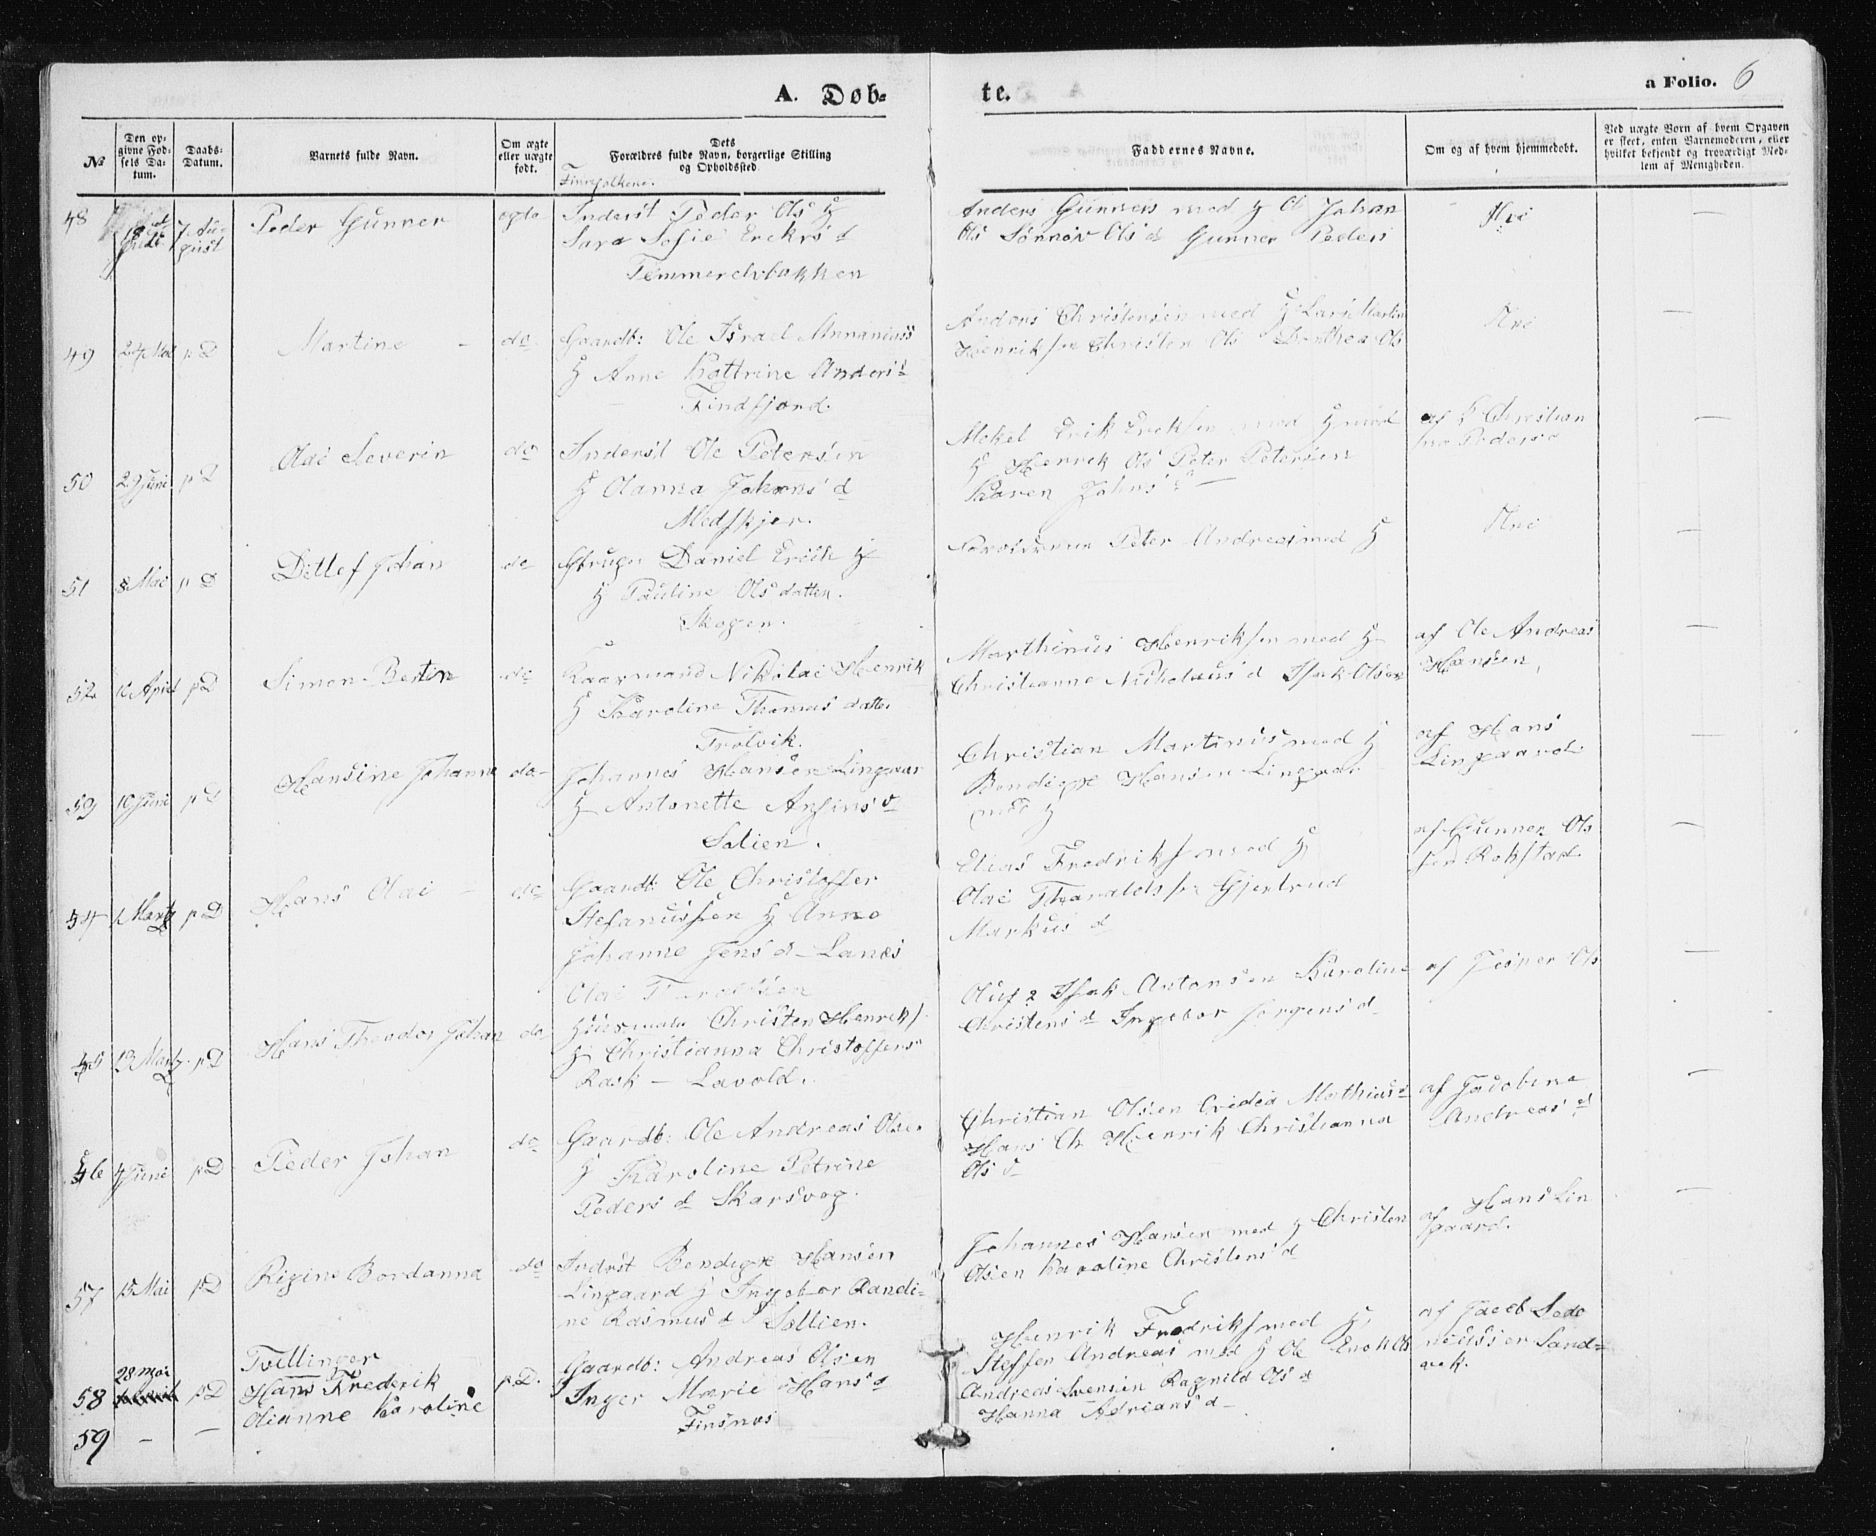 A. Døb-
te.
a Folio. 6
No
Den op-
givne Fød-
sels Da-
tum.
Daabs-
Datum.
Barnets fulde Navn.
Om ægte
eller uægte
født.
Dets
Forældres fulde Navn, borgerlige Stilling
og Opholdssted.
Finnefolkene.
Faddernes Navne.
Om og af hvem hjemmedøbt.
Ved uægte Børn af hvem Opgaven
er skeet, enten Barnemoderen, eller
hvilket bekjendt og troværdigt Med-
lem af Menigheden.
48
18de
Juli
7 Au-
gust
Peder Gunner
ægte
Inderst Peder Ols H
Sara Sofie Ericks d
Temmerelvbakken
Anders Gunners med H Johan
Ols Sønnøv Ols d Gunner Peders
Nei
—
49
24 Mai
p D
Martine
do
Gaardb: Ole Israel Annanias
H Anne Kattrine Anders d
Findfjord.
Andors Christensen med H Lars Martin
Henriksen Christen Ols Dorthea Ols
Nei
—
50
29 Juni
p D
Olai Severin
do
Inderst Ole Petersen
H Olanna Johans d
Medskjer.
Mekel Erik Ericksen med H
H Henrik Ols Peter Petersen
Karen Johns d
af Christian
Pederse
—
51
8 Mai
p D
Ditlef Johan
do
Gbruger Daniel Erich
H Pauline Ols datter.
Skogen.
Peter Andreas med H
Nei
—
52
16 April
p D
Simon Bertin
do
Kaarmand Nikolai Henrik
H Karoline Thomas datter
Trolvik.
Marthinus Henriksen med H
Christianne Nicholaus d Isak Olsen
af Ole Andreas
Hansen,
—
53
10 Juni
p D
Hansine Johanna
do
Johannes Hansen Lingaar
H Antonette Anfins d
Solien.
Christian Martinus med H
Bendigx Hansen Lingaar
med H
af Hans
Lingaard
—
54
Martz
p D
Hans Olai
do
Gaardb: Ole Christoffer
Stefanussen H Anne
Johanne Jens d Lanes
Olai
Elias Fredriks med H
Olai Tharaldsen Gjertrud
Markus d
af Gunner Ols
sen Rokstad
—
55
13 Martz
p D
Hans Theodor Johan
do
Husmand Christen Henriks
H Christianna Christoffers
Rask — Lavold.
Oluf Isak Antonsen Karoline
Christens d Ingebor Jørgens d
af Jesper Ols
—
56
4 Juni
p D
Peder Johan
do
Gaardb: Ole Andreas Olsen
H Karoline Petrine
Peders d Skarsvog.
Christian Olsen Mathias d
Hans Ch Henrik Christianna
Ols d
af Jacobina
Andreas d
—
57
13 Mai
p D
Rigine Bordanna
do
Inderst Bendigx Hansen
Lingaard H Ingebor Randi-
ne Rasmus d Sollien.
Johannes Hansen med H Christen
Olsen Karoline Christens d
af Hans Lin
gaard.
—
58
28 Mai
p D
Tvillinger
Hans Frederik
Olianne Karoline
p D.
Gaardb: Andreas Olsen
Inger Marie Hans d
Finsnes
Henrik Fredriks med H,
Steffen Andreas med H Ole Enok Ols
Andreas Svensen Ragnild Ols d
Hanna Adrians d
af Jacob
Sand-
vek.
59
—
—